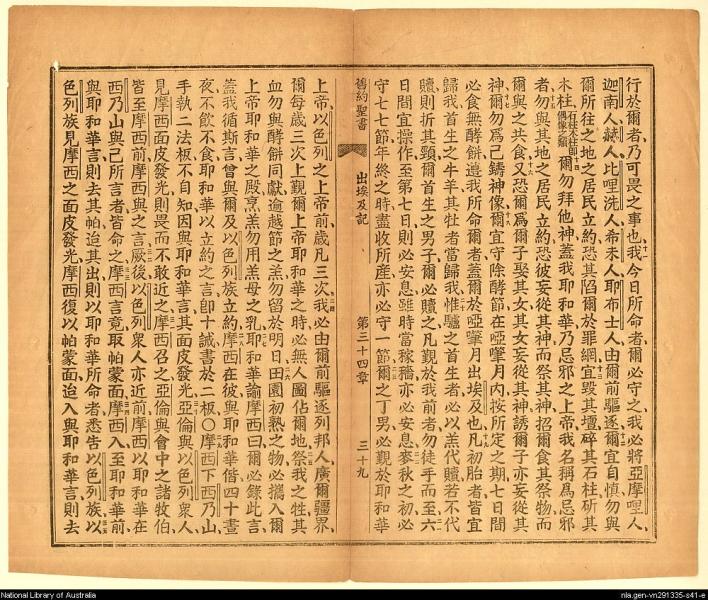 行於爾者乃可畏之事也我今日所命者爾必守之我必將亞摩哩人
迦南人赫人比哩洗人希未人耶布士人由爾前驅逐爾宜自慎勿與
爾所往之地之居民立約恐其陷爾於罪網宜毀其壇碎其石柱斫其
木柱石柱木柱即偶像之類爾勿拜他神蓋我耶和華乃忌邪之上帝我名稱為忌邪
者勿與其地之居民立約恐彼妄從其神而祭其神招爾食其祭物而
爾與之共食又恐爾為爾子娶其女其女妄從其神誘爾子亦妄從其
神爾勿為己鑄神像爾宜守除酵節在啞筆月內按所定之期七日間
必食無酵餅遵我所命爾者蓋爾於啞筆月出埃及也凡初胎者皆宜
歸我首生之牛羊其牡者當歸我惟驢之首生者必以羔代贖若不代
贖則折其頸爾首生之男子爾必贖之凡覲於我前者勿徒手而至六
日間宜操作至第七日則必安息雖時當稼穡亦必安息麥秋之初必
守七七節年終之時盡收所產亦必守一節爾之丁男必覲於耶和華
舊約聖書 出埃及記 第三十四章 三十九
上帝以色列之上帝前歲凡三次我必由爾前驅逐列邦人廣爾疆界
爾每歲三次上覲爾上帝耶和華之時必無人圖佔爾地祭我之牲其
血勿與酵餅同獻逾越節之羔勿留於明日田園初熟之物必攜入爾
上帝耶和華之殿烹羔勿用羔母之乳耶和華諭摩西曰爾必錄此言
蓋我循斯言曾與爾及以色列族立約摩西在彼與耶和華偕四十晝
夜不飲不食耶和華以立約之言即十誡書於二板〇摩西下西乃山
手執二法板不自知因與耶和華言其面皮發光亞倫與以色列眾人
見摩西面皮發光則畏而不敢近之摩西召之亞倫與會中之諸牧伯
皆至摩西前摩西與之言厥後以色列眾人亦近前摩西以耶和華在
西乃山與己所言者皆命之摩西言竟取帕蒙面摩西入至耶和華前
與耶和華言則去其帕迨其出則以耶和華所命者悉告以色列族以
色列族見摩西之面皮發光摩西復以帕蒙面迨入與耶和華言則去
National Library of Australia
nla.gen-vn291335-s41-e